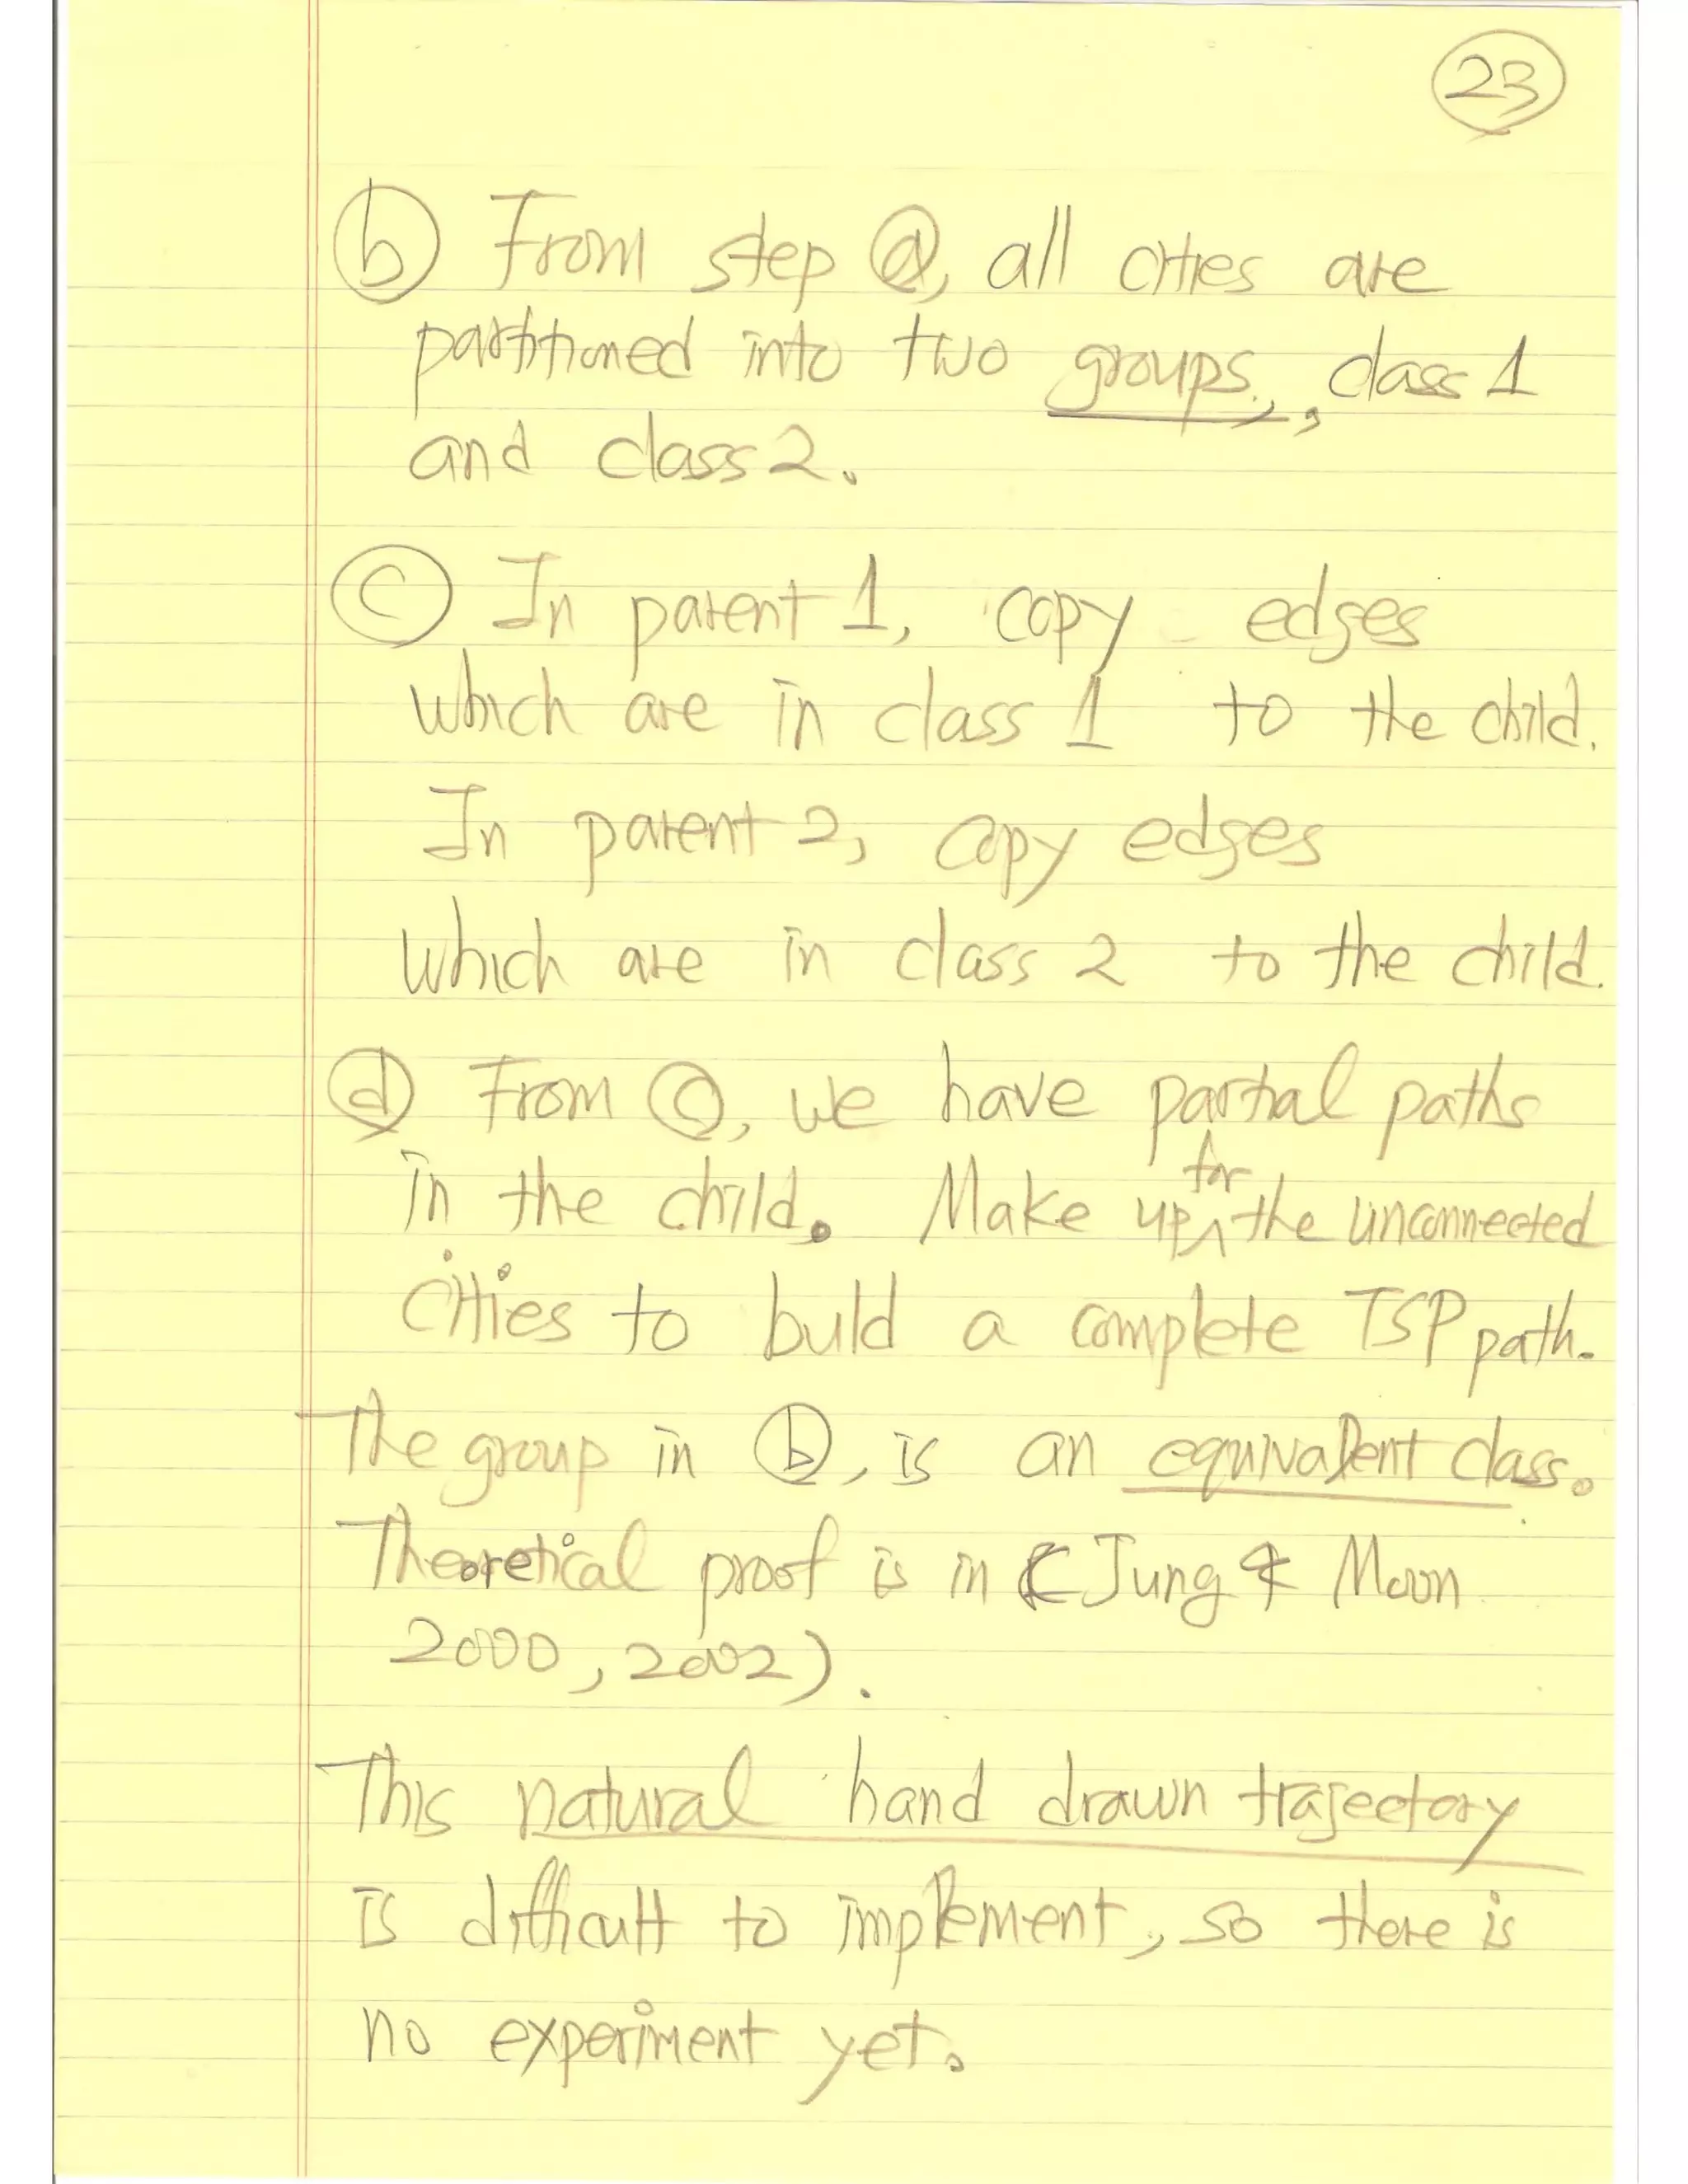 23
ⓑ From step ⓐ, all cities are
partitioned into two groups., class 1
and class 2.
ⓒ In parent 1, copy edges
which are in class 1 to the child.
In parent 2, copy edges
which are in class 2 to the child.
ⓓ From ⓒ, we have partial paths
in the child. Make up for the unconnected
cities to buld a complete TSP path.
The group in ⓑ, is an equivalent class.
Theoretical proof is in (Jung & Moon
2000, 2002).
This natural hand drawn trajectory
is difficult to implement, so there is
no experiment yet.